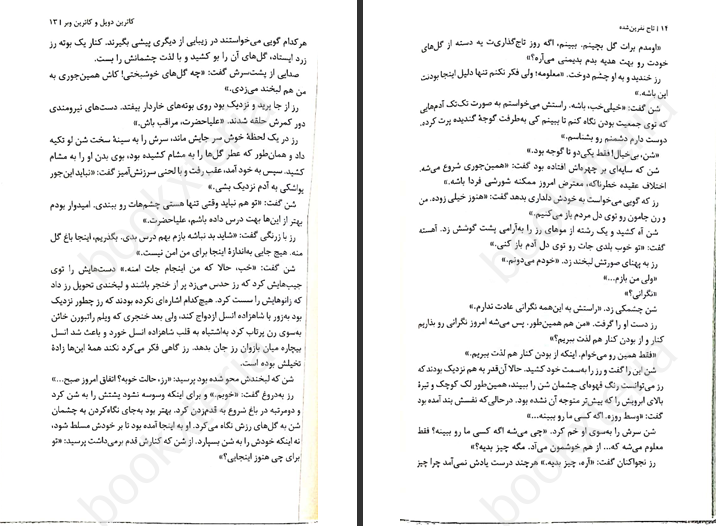 کاترین دویل و کاترین وبر | ۱۳
هرکدام گویی می‌خواستند در زیبایی از دیگری پیشی بگیرند. کنار یک بوته رز
زرد ایستاد، گل‌های آن را بو کشید و با لذت چشمانش را بست.
صدایی از پشت‌سرش گفت: «چه گل‌های خوشبختی! کاش همین‌جوری به
من هم لبخند می‌زدی.»
رز از جا پرید و نزدیک بود روی بوته‌های خاردار بیفتد. دست‌های نیرومندی
دور کمرش حلقه شدند. «علیاحضرت، مراقب باش.»
رز در یک لحظهٔ خوش سر جایش ماند، سرش را به سینهٔ سخت شن لو تکیه
داد و همان‌طور که عطر گل‌ها را به مشام کشیده بود، بوی بدن او را به مشام
کشید. سپس به خود آمد، عقب رفت و با لحنی سرزنش‌آمیز گفت: «نباید این‌جور
یواشکی به آدم نزدیک بشی.»
شن گفت: «تو هم نباید وقتی تنها هستی چشم‌هات رو ببندی. امیدوار بودم
بهتر از این‌ها بهت درس داده باشم، علیاحضرت.»
رز با زرنگی گفت: «شاید بد نباشه بازم بهم درس بدی. بگذریم، اینجا باغ گل
منه. هیچ جایی به‌اندازهٔ اینجا برای من امن نیست.»
شن گفت: «خب، حالا که من اینجام جات امنه.» دست‌هایش را توی
جیب‌هایش کرد که رز حدس می‌زد پر از خنجر باشند و لبخندی تحویل رز داد
که زانوهایش را سست کرد. هیچ‌کدام اشاره‌ای نکرده بودند که رز چطور نزدیک
بود به‌زور با شاهزاده انسل ازدواج کند، ولی بعد خنجری که ویلم راتبورن خائن
به‌سوی رن پرتاب کرد به‌اشتباه به قلب شاهزاده انسل خورد و باعث شد انسل
بیچاره میان بازوان رز جان بدهد. رز گاهی فکر می‌کرد نکند همهٔ این‌ها زادهٔ
تخیلش بوده است.
شن که لبخندش محو شده بود پرسید: «رز، حالت خوبه؟ اتفاق امروز صبح...»
رز به‌دروغ گفت: «خوبم.» و برای اینکه وسوسه نشود پشتش را به شن کرد
و دومرتبه در باغ شروع به قدم‌زدن کرد. بهتر بود به‌جای نگاه‌کردن به چشمان
شن به گل‌های رزش نگاه می‌کرد. او به اینجا آمده بود تا بر خودش مسلط شود،
نه اینکه خودش را به شن بسپارد. از شن که کنارش قدم برمی‌داشت پرسید: «تو
برای چی هنوز اینجایی؟»
۱۴ | تاج نفرین‌شده
«اومدم برات گل بچینم. ببینم، اگه روز تاج‌گذاری‌ت یه دسته از گل‌های
خودت رو بهت هدیه بدم بدیمنی می‌آره؟»
رز خندید و به او چشم دوخت. «معلومه؛ ولی فکر نکنم تنها دلیل اینجا بودنت
این باشه.»
شن گفت: «خیلی‌خب، باشه. راستش می‌خواستم به صورت تک‌تک آدم‌هایی
که توی جمعیت بودن نگاه کنم تا ببینم کی به‌طرفت گوجهٔ گندیده پرت کرده.
دوست دارم دشمنم رو بشناسم.»
«شن، بی‌خیال! فقط یکی‌دو تا گوجه بود.»
شن که سایه‌ای بر چهره‌اش افتاده بود گفت: «همین‌جوری شروع می‌شه.
اختلاف عقیده خطرناکه، معترض امروز ممکنه شورشی فردا باشه.»
رز که گویی می‌خواست به خودش دلداری بدهد گفت: «هنوز خیلی زوده. من
و رن جامون رو توی دل مردم باز می‌کنیم.»
شن آه کشید و یک رشته از موهای رز را به‌آرامی پشت گوشش زد. آهسته
گفت: «تو خوب بلدی جات رو توی دل آدم باز کنی.»
رز به پهنای صورتش لبخند زد. «خودم می‌دونم.»
«ولی من بازم...»
«نگرانی؟»
شن چشمکی زد. «راستش به این‌همه نگرانی عادت ندارم.»
رز دست او را گرفت. «من هم همین‌طور. پس می‌شه امروز نگرانی رو بذاریم
کنار و از بودن کنار هم لذت ببریم؟»
«فقط همین رو می‌خوام. اینکه از بودن کنار هم لذت ببریم.»
شن این را گفت و رز را به‌سمت خود کشید. حالا آن‌قدر به هم نزدیک بودند که
رز می‌توانست رنگ قهوه‌ای چشمان شن را ببیند، همین‌طور لک کوچک و تیرهٔ
بالای ابرویش را که پیش‌تر متوجه آن نشده بود. درحالی‌که نفسش بند آمده بود
گفت: «وسط روزه. اگه کسی ما رو ببینه...»
شن سرش را به‌سوی او خم کرد. «چی می‌شه اگه کسی ما رو ببینه؟ فقط
معلوم می‌شه که... از هم خوشمون می‌آد. مگه چیز بدیه؟»
رز نجواکنان گفت: «آره، چیز بدیه.» هرچند درست یادش نمی‌آمد چرا چیز